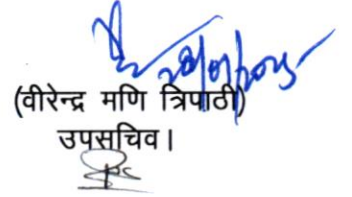 (वीरेन्द्र मणि त्रिपाठी)
उपसचिव।